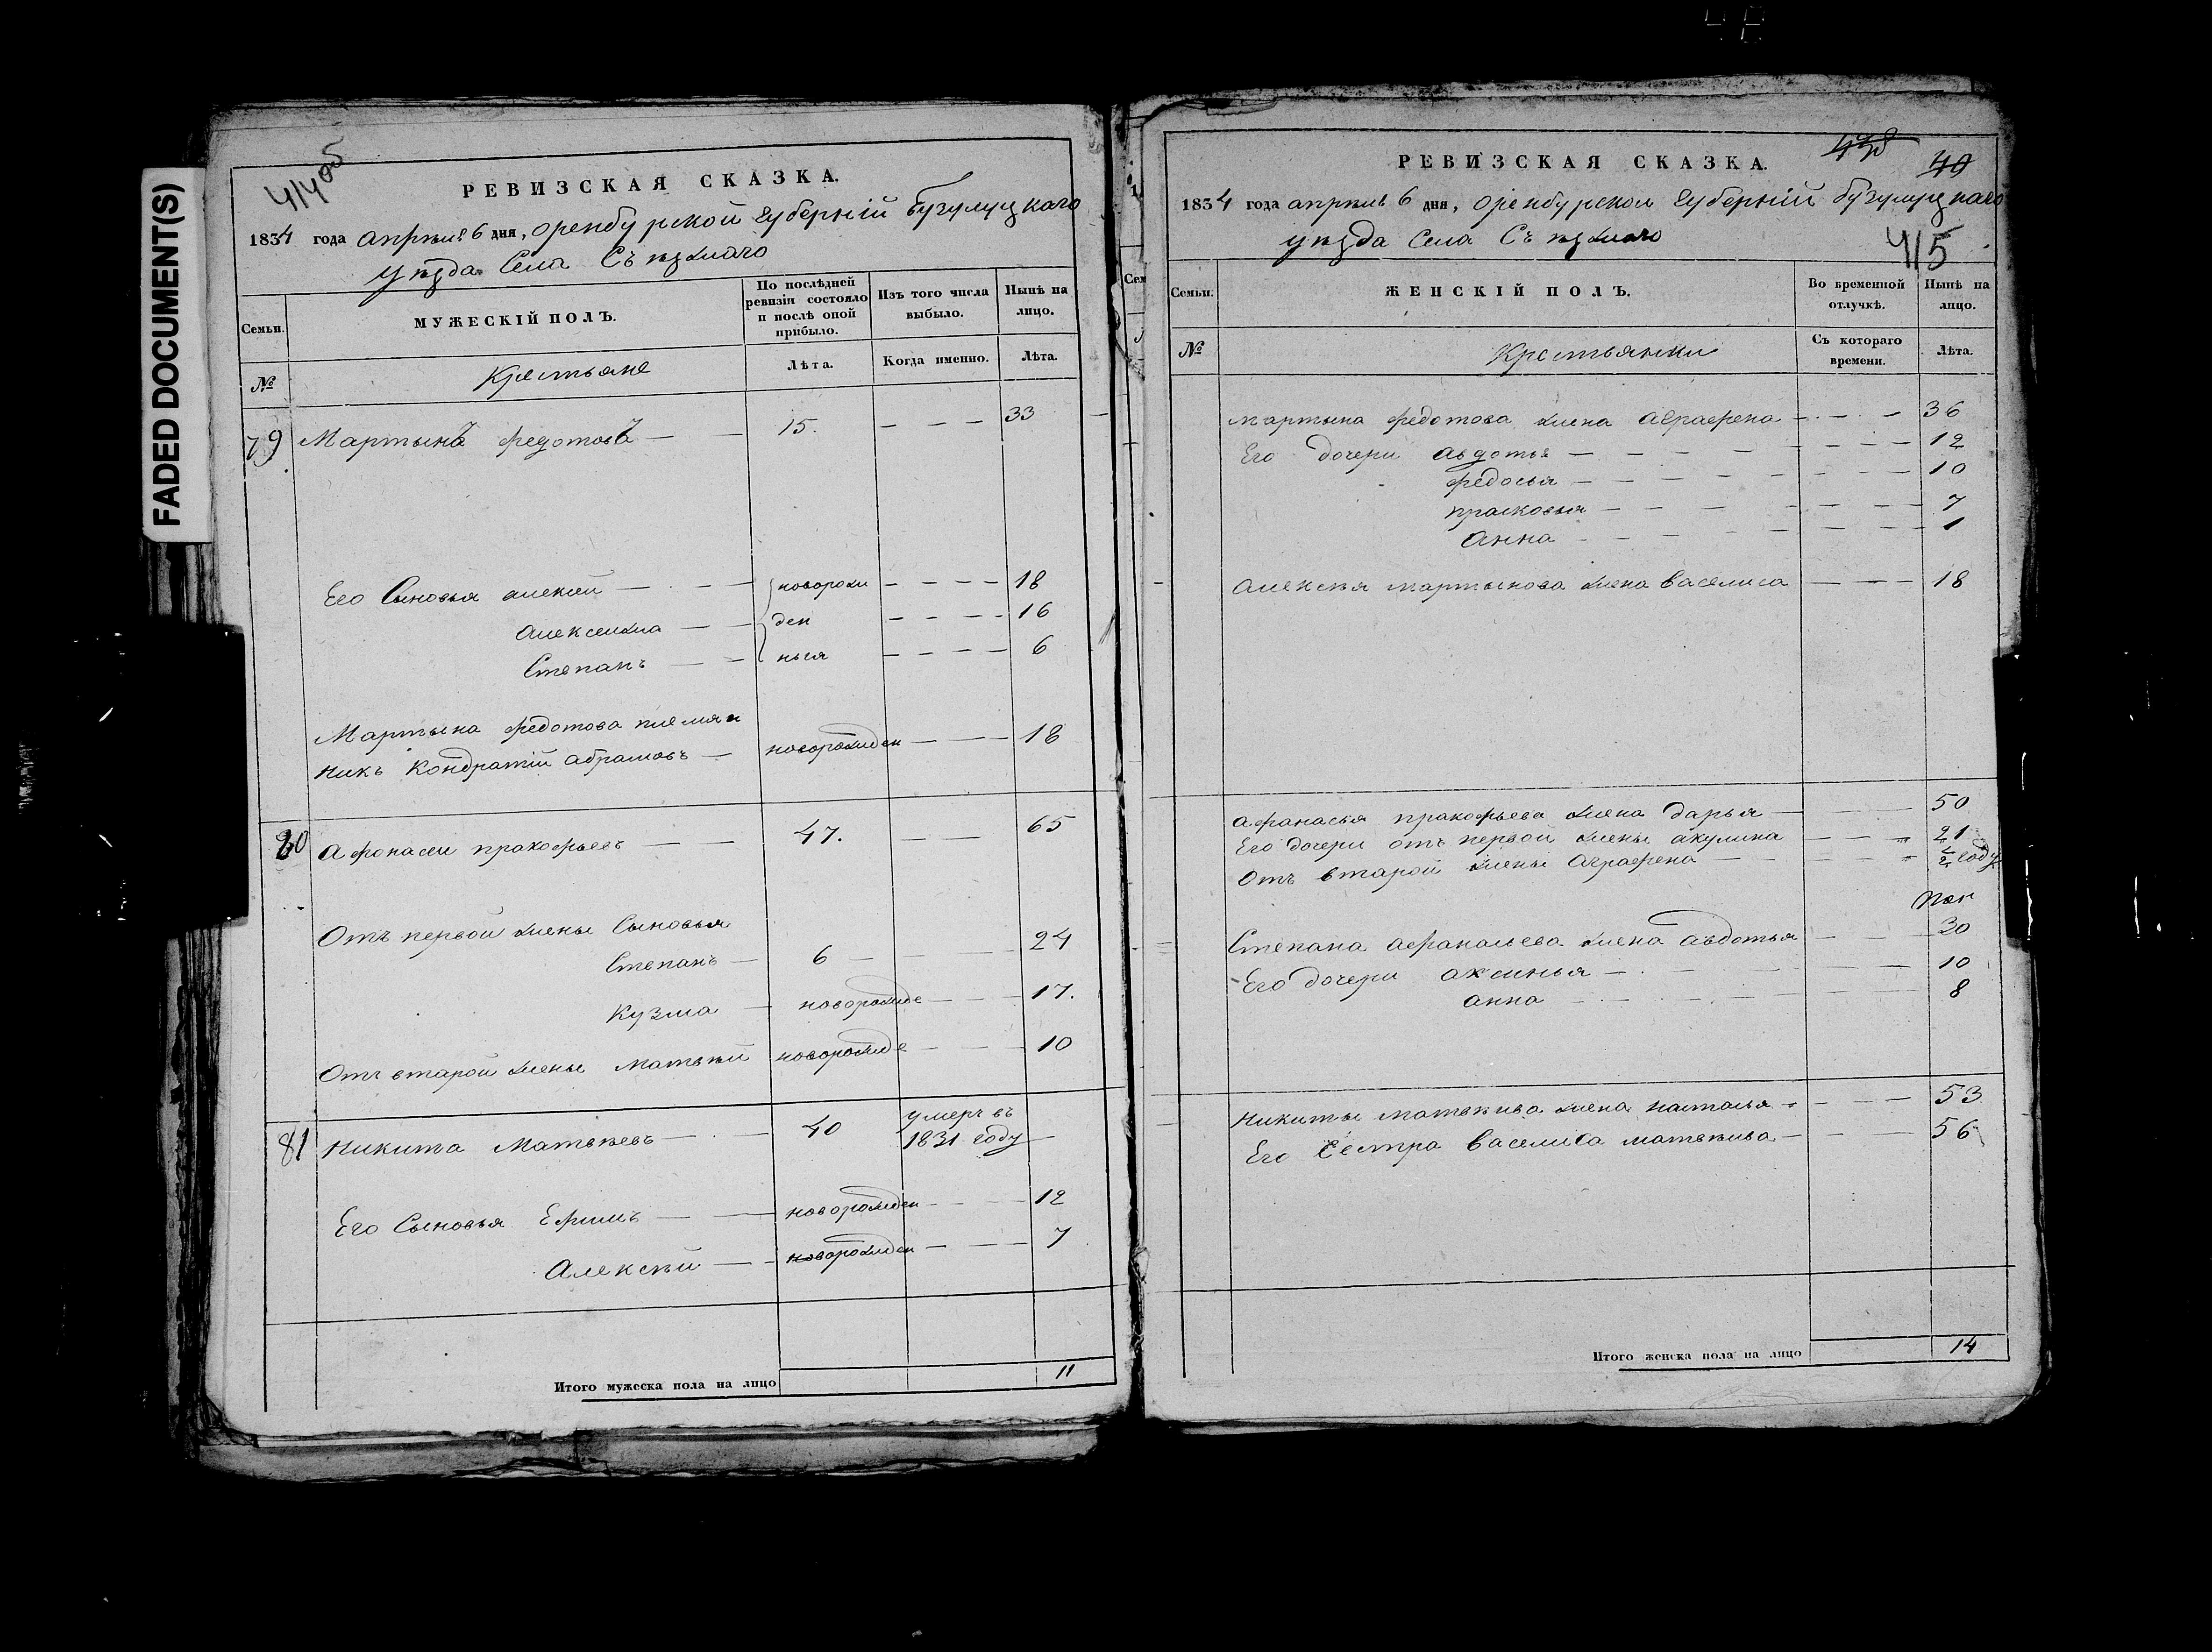 FADED DOCUMENT(S)
414об
РЕВИЗСКАЯ СКАЗКА.
1834 года апреля 6 дня, оренбурской губерніи бугулуцкаго
уѣзда Села Съѣзжаго
Семьи.
МУЖЕСКІЙ ПОЛЪ.
По послѣдней ревизіи состояло и послѣ оной прибыло.
Изъ того числа выбыло.
Нынѣ на лицо.
№
Крестьяне
Лѣта.
Когда именно.
Лѣта.
79 Мартынъ федотовъ — — 15. — — — 33
Его Сыновья алексей — новорожи — — — 18
Алексешка — — ден — — — 16
Степанъ — — ныя — — — 6
Мартына федотова племян
никъ Кондратій абрамовъ — новорожден — — 18
80 Афонасеи пракофьевъ — — 47. — — 65
Отъ первой жены Сыновья
Степанъ — 6 — — 24
Кузма — новорожде — — 17.
Отъ второй жены матвѣй новорожде — — 10
81 Никита Матвѣевъ — — 40 умеръ въ
1831 году —
Его Сыновья Ефимъ — — новорожден — — 12
Алексѣй — — новорожден — — 7
Итого мужеска пола на лицо 11
РЕВИЗСКАЯ СКАЗКА.
49
1834 года апреля 6 дня, оренбурской губерніи бугулуцкаго
уѣзда Села Съѣзжаго
415
Семьи.
ЖЕНСКІЙ ПОЛЪ.
Во временной отлучкѣ.
Нынѣ на лицо.
№
Крестьянки
Съ котораго времени.
Лѣта.
мартына федотова жена аграфена — — 36
Его дочери авдотья — — — 12
федосья — — — 10
прасковья — — — 7
Анна — — — 1
алексѣя мартынова жена Васелиса — — — 18
афанасья пракофьева жена дарья — — — 50
Его дочери отъ первои жены акулина — — 21
Отъ второй жены аграфена — — — ½ году
Степана афанасьева жена авдотья — 30
Его дочери аксинья — — — 10
анна — — — 8
Никиты матвѣива жена наталья — — — 53
Его Сестра Васелиса матвѣива — — 56
Итого женска пола на лицо 14